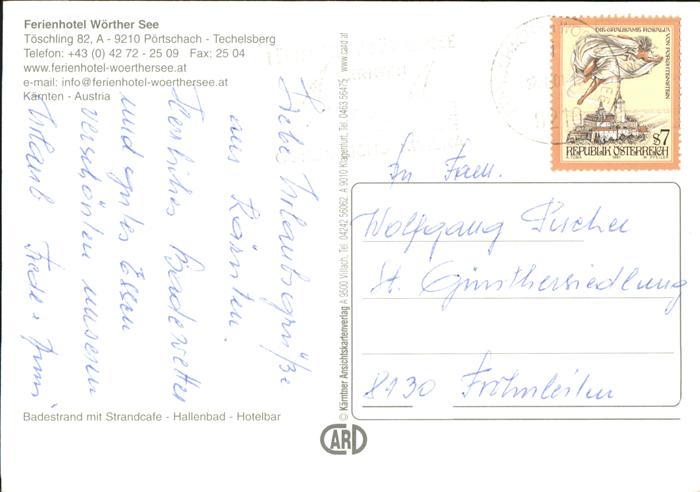 Ferienhotel Wörther See
Töschling 82, A - 9210 Pörtschach - Techelsberg
Telefon: +43 (0) 42 72 - 25 09 Fax: 25 04
www.ferienhotel-woerthersee.at
e-mail: info@ferienhotel-woerthersee.at
Kärnten - Austria
Liebe Urlaubsgrüße
aus Kärnten.
Herrliches Badewetter
und gutes Essen
verschönten unseren
Urlaub
Badestrand mit Strandcafe - Hallenbad - Hotelbar
© Kärntner Ansichtskartenverlag A 9500 Villach, Tel. 04242 56062, A 9010 Klagenfurt, Tel. 0463 56475 www.card.at
CARD
DIE GRAUSAME ROSALIA
VON FORCHTENSTEIN
S7
REPUBLIK ÖSTERREICH
An Fam.
Wolfgang
St. Günthersiedlung
8130 Frohnleiten